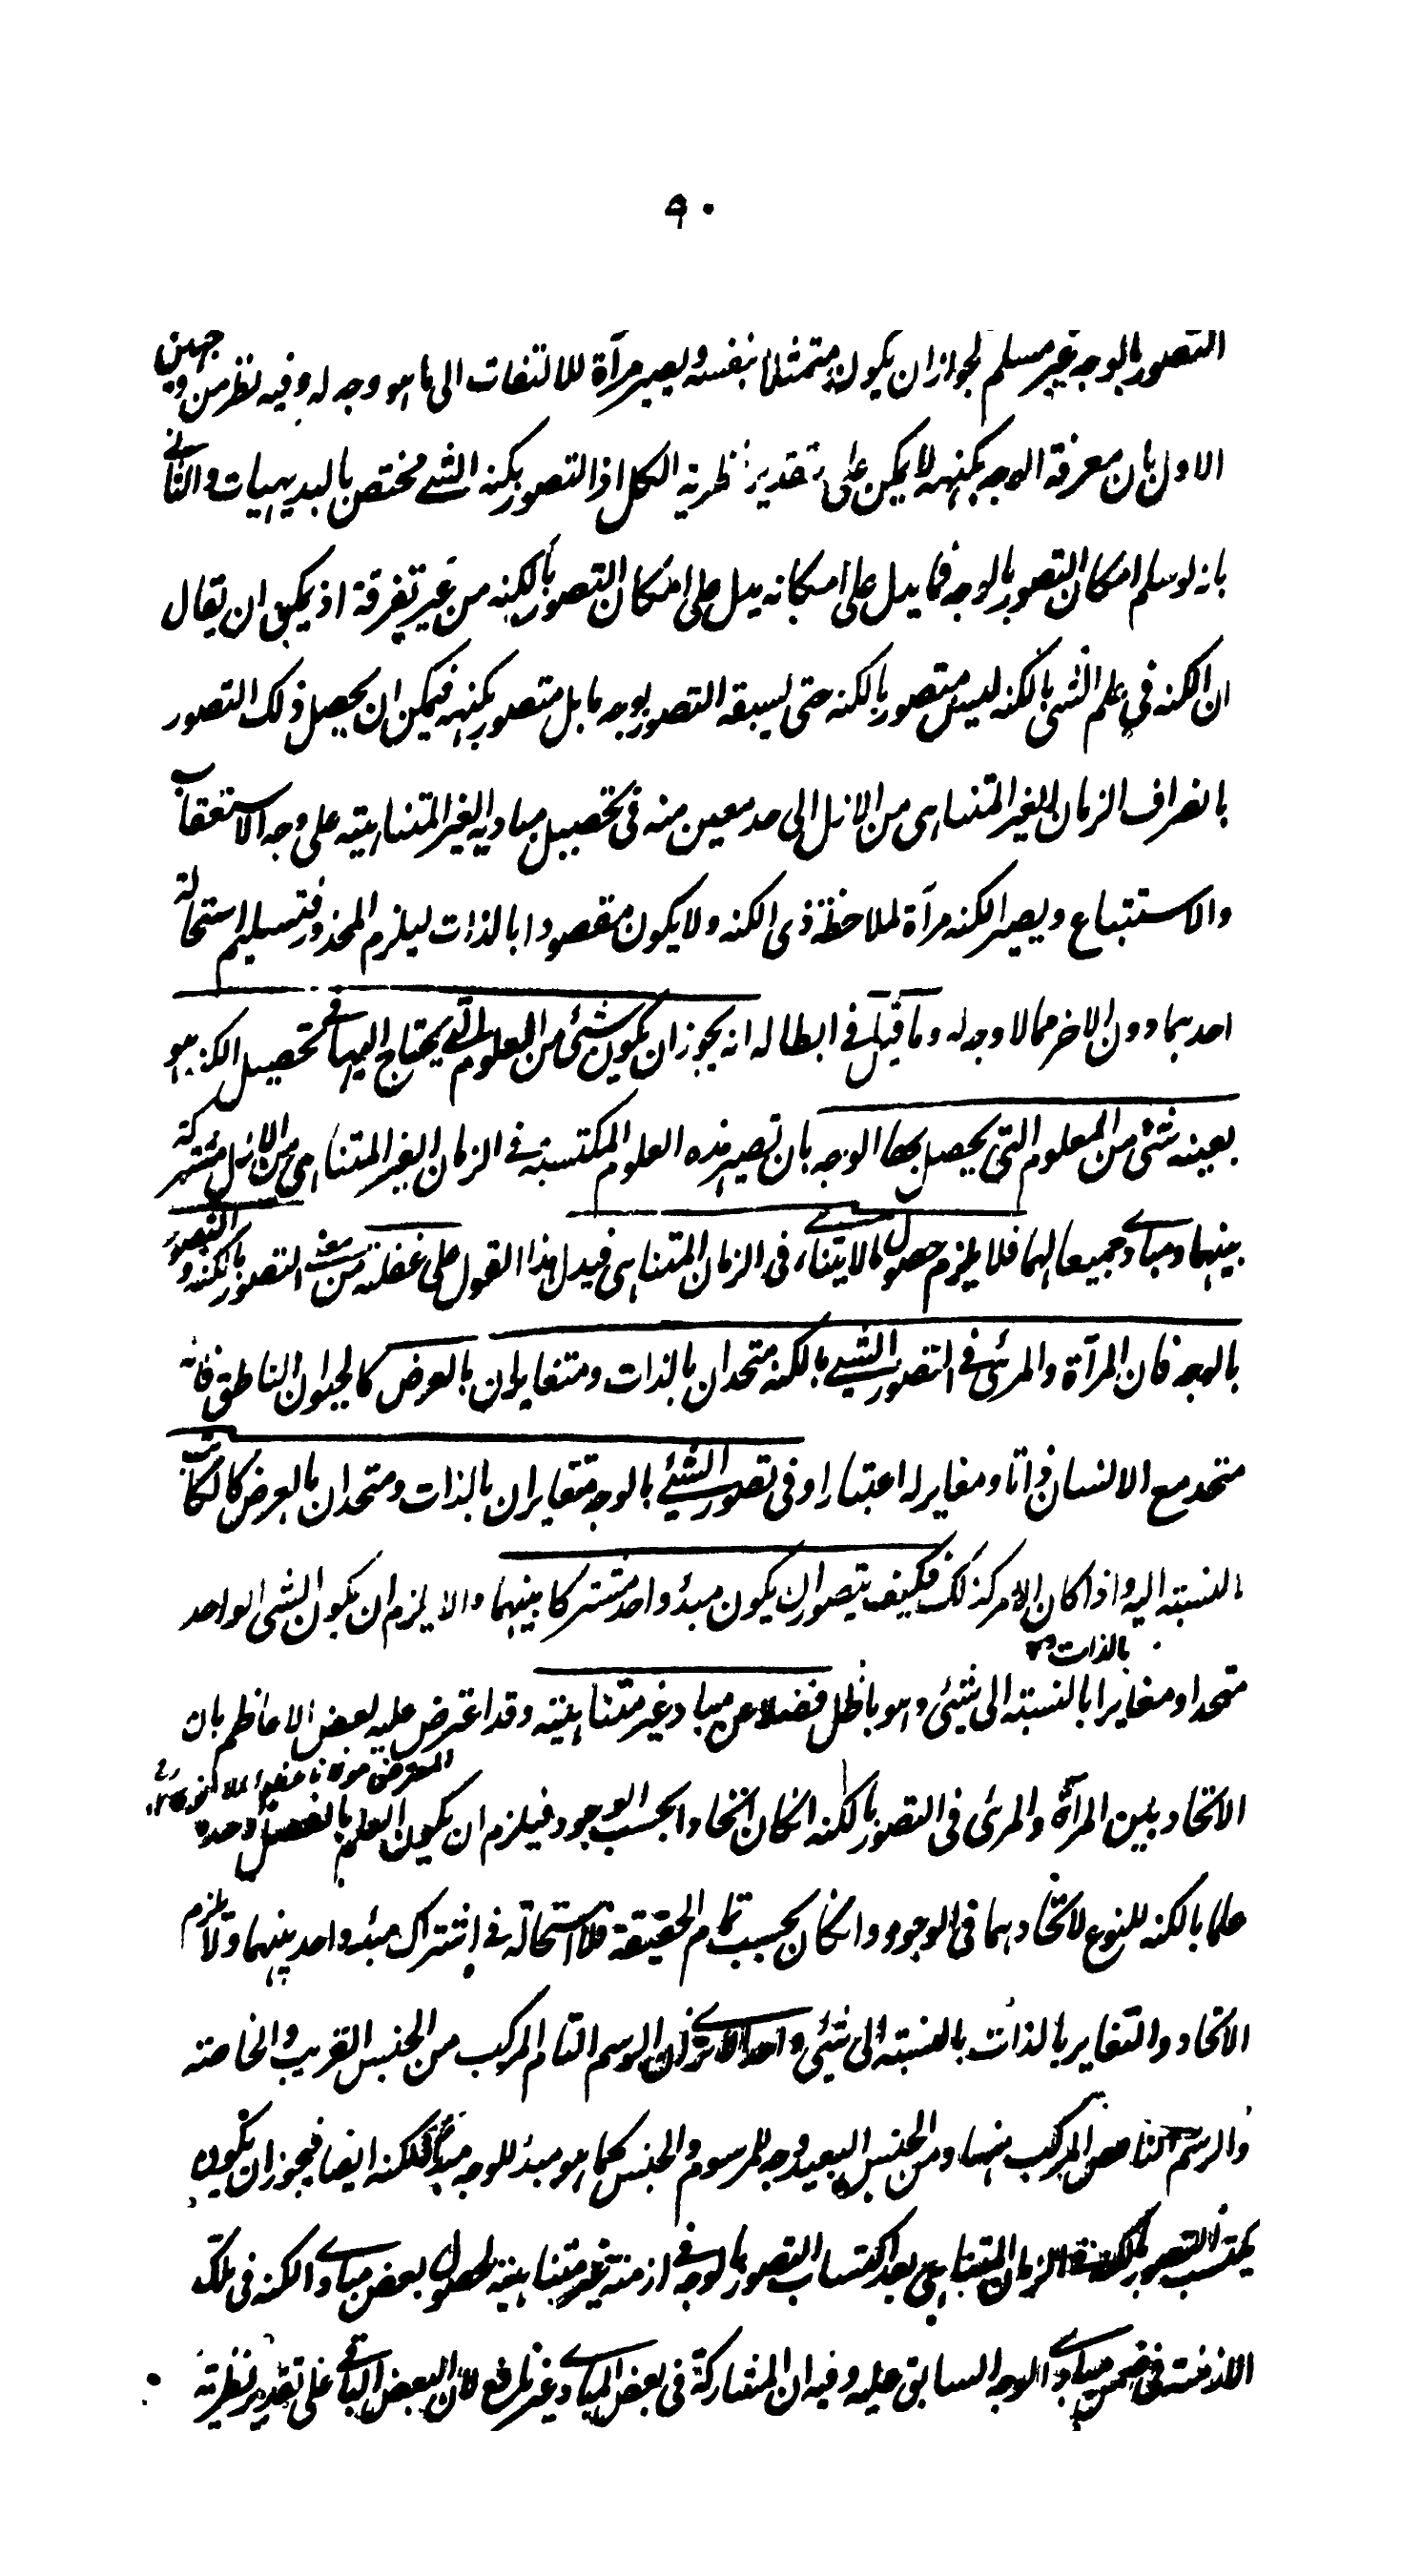 ٩٠
التصور بالوجه غير مسلم لجواز ان يكون متمثلا بنفسه ويصير مرآة للالتفات الى ما هو وجه له وفيه نظر من وجهين
الاول بان معرفة الوجه بكنهه لا يمكن على تقدير نظرية الكل اذ التصور بكنه الشئ مختص بالبديهيات والثانى
بانه لو سلم امكان التصور بالوجه فما يدل على امكانه يدل على امكان التصور بالكنه من غير تفرقة اذ يمكن ان يقال
ان الكنه فى علم الشئ بالكنه ليس متصور بالكنه حتى يسبقه التصور بوجه ما بل متصور بكنهه فيمكن ان يحصل ذلك التصور
بانصراف الزمان الغير المتناهى من الازل الى حد معين منه فى تحصيل مباديه الغير المتناهية على وجه الاستعقاب
والاستتباع ويصير الكنه مرآة لملاحظة ذى الكنه ولا يكون مقصودا بالذات ليلزم المحذور فتسليم استحالة
احدهما دون الاخر مما لا وجه له وما قيل فى ابطاله انه يجوز ان يكون شئ من العلوم التى يحتاج اليها فى تحصيل الكنه هو
بعينه شئ من المعلوم التى يحصل بها الوجه بان تصير هذه العلوم المكتسبة فى الزمان الغير المتناهى من الازل مشتركة
بينهما ومبادى جميعا لهما فلا يلزم حصول مالا يتناهى فى الزمان المتناهى فيدل هذا القول على غفلة من معنى التصور بالكنه والتصور
بالوجه فان المرآة والمرئى فى التصور الشئ بالكنه متحدان بالذات ومتغايران بالعرض كالحيوان الناطق فانه
متحد مع الانسان ذاتا ومغاير له اعتبارا وفى تصور الشئ بالوجه متغايران بالذات ومتحدان بالعرض كالكاتب
بالنسبة اليه واذا كان الامر كذلك فكيف يتصور ان يكون مبدؤ واحد مشتركا بينهما والا يلزم ان يكون الشئ الواحد
بالذات
متحدا ومغايرا بالنسبة الى شئ وهو باطل فضلا عن مباد غير متناهية وقد اعترض عليه بعض الاعاظم بان
المعترض مولانا
الاتحاد بين المرآة والمرئى فى التصور بالكنه انكان اتحادا بحسب الوجود فيلزم ان يكون العلم بالفصل وحده
علما بالكنه للنوع لاتحادهما فى الوجود وانكان بحسب تمام الحقيقة فلا استحالة فى اشتراك مبدء واحد بينهما ولا يلزم
الاتحاد والتغاير بالذات بالنسبة الى شئ واحد الرسم التام المركب من الجنس القريب والخاصة
والرسم الناقص المركب منها ومن الجنس البعيد وجه للمرسوم والجنس كما هو مبدء للوجه مبدأ للكنه ايضا فيجوز ان يكون
يكتسب التصور بالكنه فى الزمان المتناهى بعد اكتساب التصور بالوجه فى ازمنة غير متناهية لحصول بعض مبادى الكنه فى تلك
الازمنة فى ضمن مبادى الوجه السابق عليه وفيه ان المشاركة فى بعض المبادى غير نافع لان البعض الباقى على تقدير نظرية